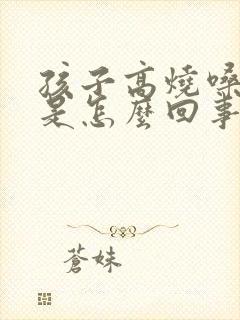 孩子高燒嗓
是怎麼回事
蒼妹